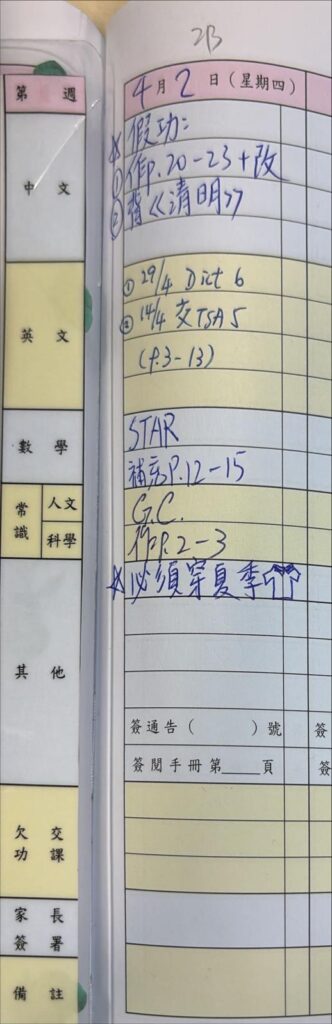 2B
第 週
4月2日(星期四)
中 文
*假功:
①作P.20-23+改
②背《清明》
英 文
① 29/4 Dict 6
② 14/4 交TSA 5
(P.3-13)
數 學
STAR
補充P.12-15
常識
人文
科學
G.C.
作P.2-3
其 他
*必須穿夏季
簽通告( )號
簽
簽閱手冊第____頁
簽
欠 交
功 課
家 長
簽 署
備 註